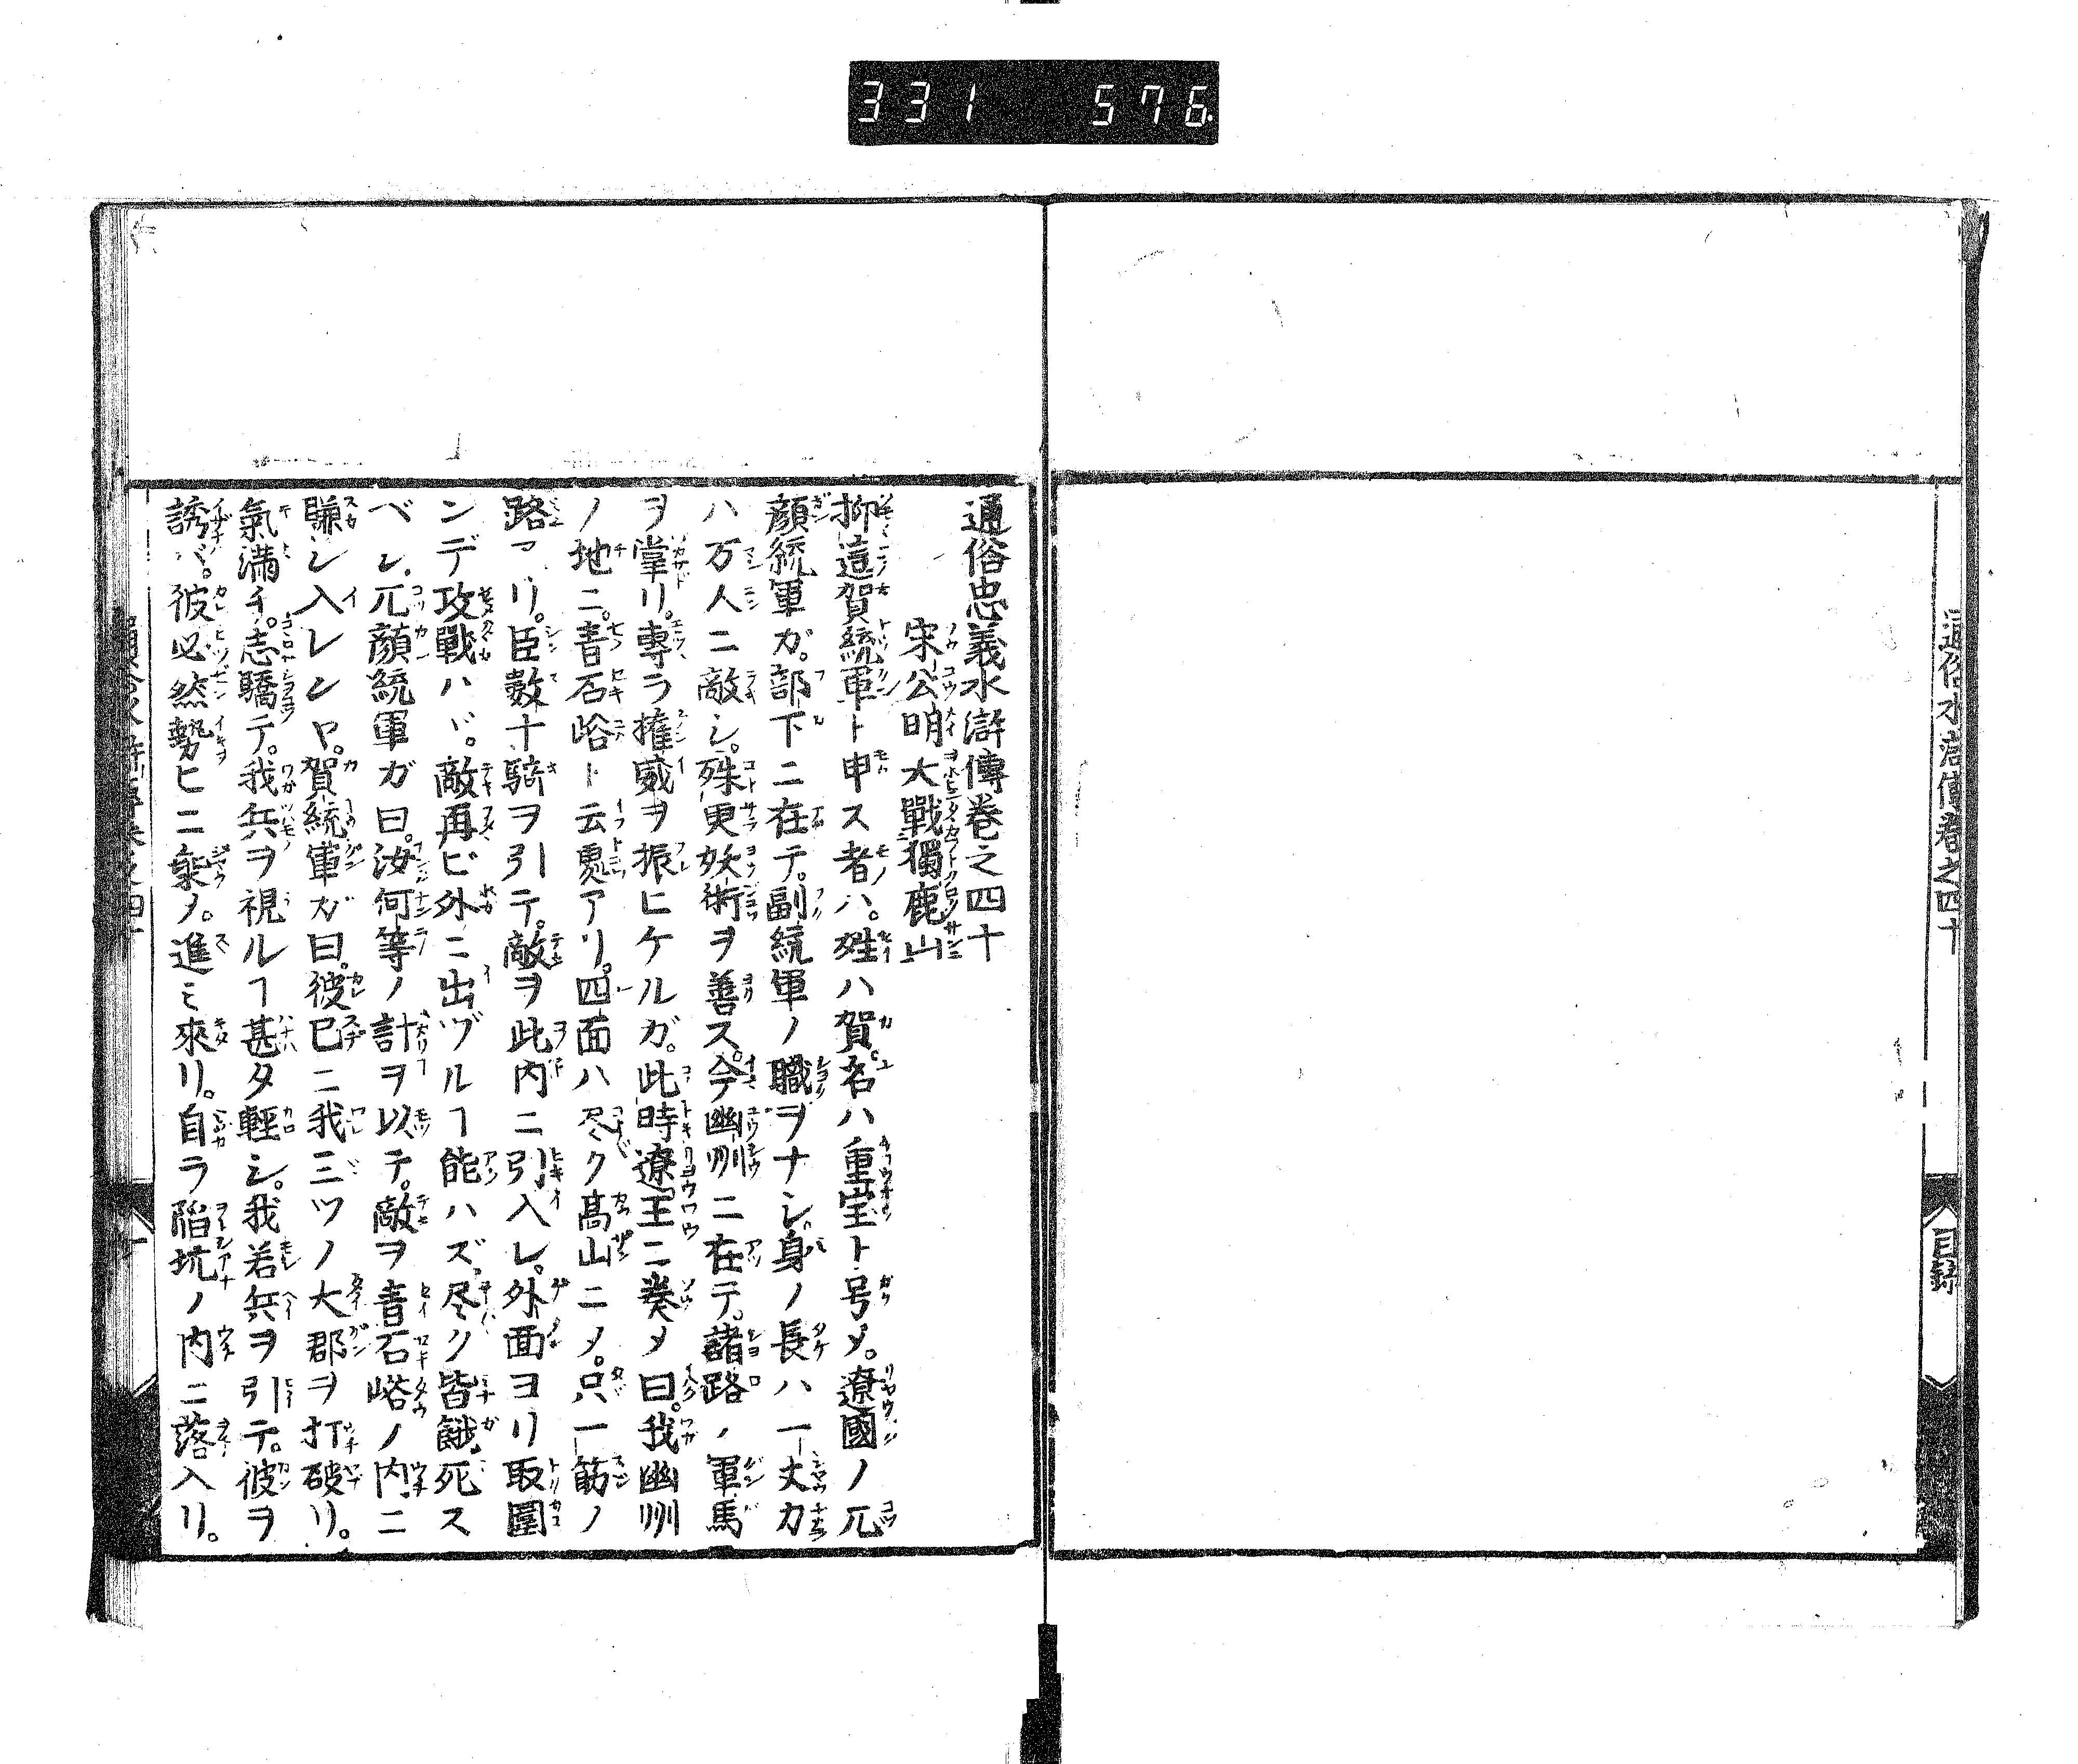 331 576
通俗水滸傳卷之四十
目録
通俗忠義水滸傳卷之四十
宋公明大戰獨鹿山
抑這賀統軍ト申ス者ハ。姓ハ賀。名ハ重宝ト号メ。遼國ノ兀
顔統軍ガ。部下ニ在テ。副統軍ノ職ヲナシ。身ノ長ハ一丈カ
ハ万人ニ敵シ。殊更妖術ヲ善ス。今幽州ニ在テ。諸路ノ軍馬
ヲ掌リ。專ラ權威ヲ振ヒケルガ。此時遼王ニ奏メ曰。我幽州
ノ地ニ。青石峪ト云處アリ。四面ハ尽ク髙山ニメ。只一筋ノ
路アリ。臣数十騎ヲ引テ。敵ヲ此内ニ引入レ。外面ヨリ取圍
ンデ攻戰ハヾ。敵再ビ外ニ出ヅルヿ能ハズ。尽ク皆餓死ス
ベシ。兀顔統軍ガ曰。汝何等ノ計ヲ以テ。敵ヲ青石峪ノ内ニ
賺シ入レンヤ。賀統軍ガ曰。彼已ニ我三ツノ大郡ヲ打破リ。
氣満チ。志驕テ。我兵ヲ視ルヿ甚タ軽シ。我若兵ヲ引テ。彼ヲ
誘バ。彼必然勢ヒニ乗メ。進ミ來リ。自ラ陥坑ノ内ニ落入リ。